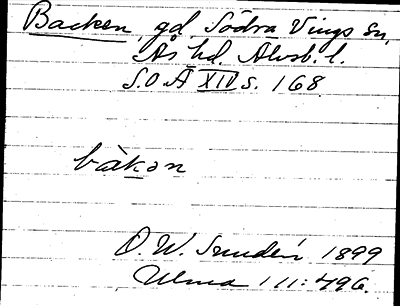 Backen gd, Södra Vings sn,
Ås hd. Älvsb. l.
S.O.Ä XIV s. 168
bàkən
O. W. Sundén 1899
Ulma 111:496.